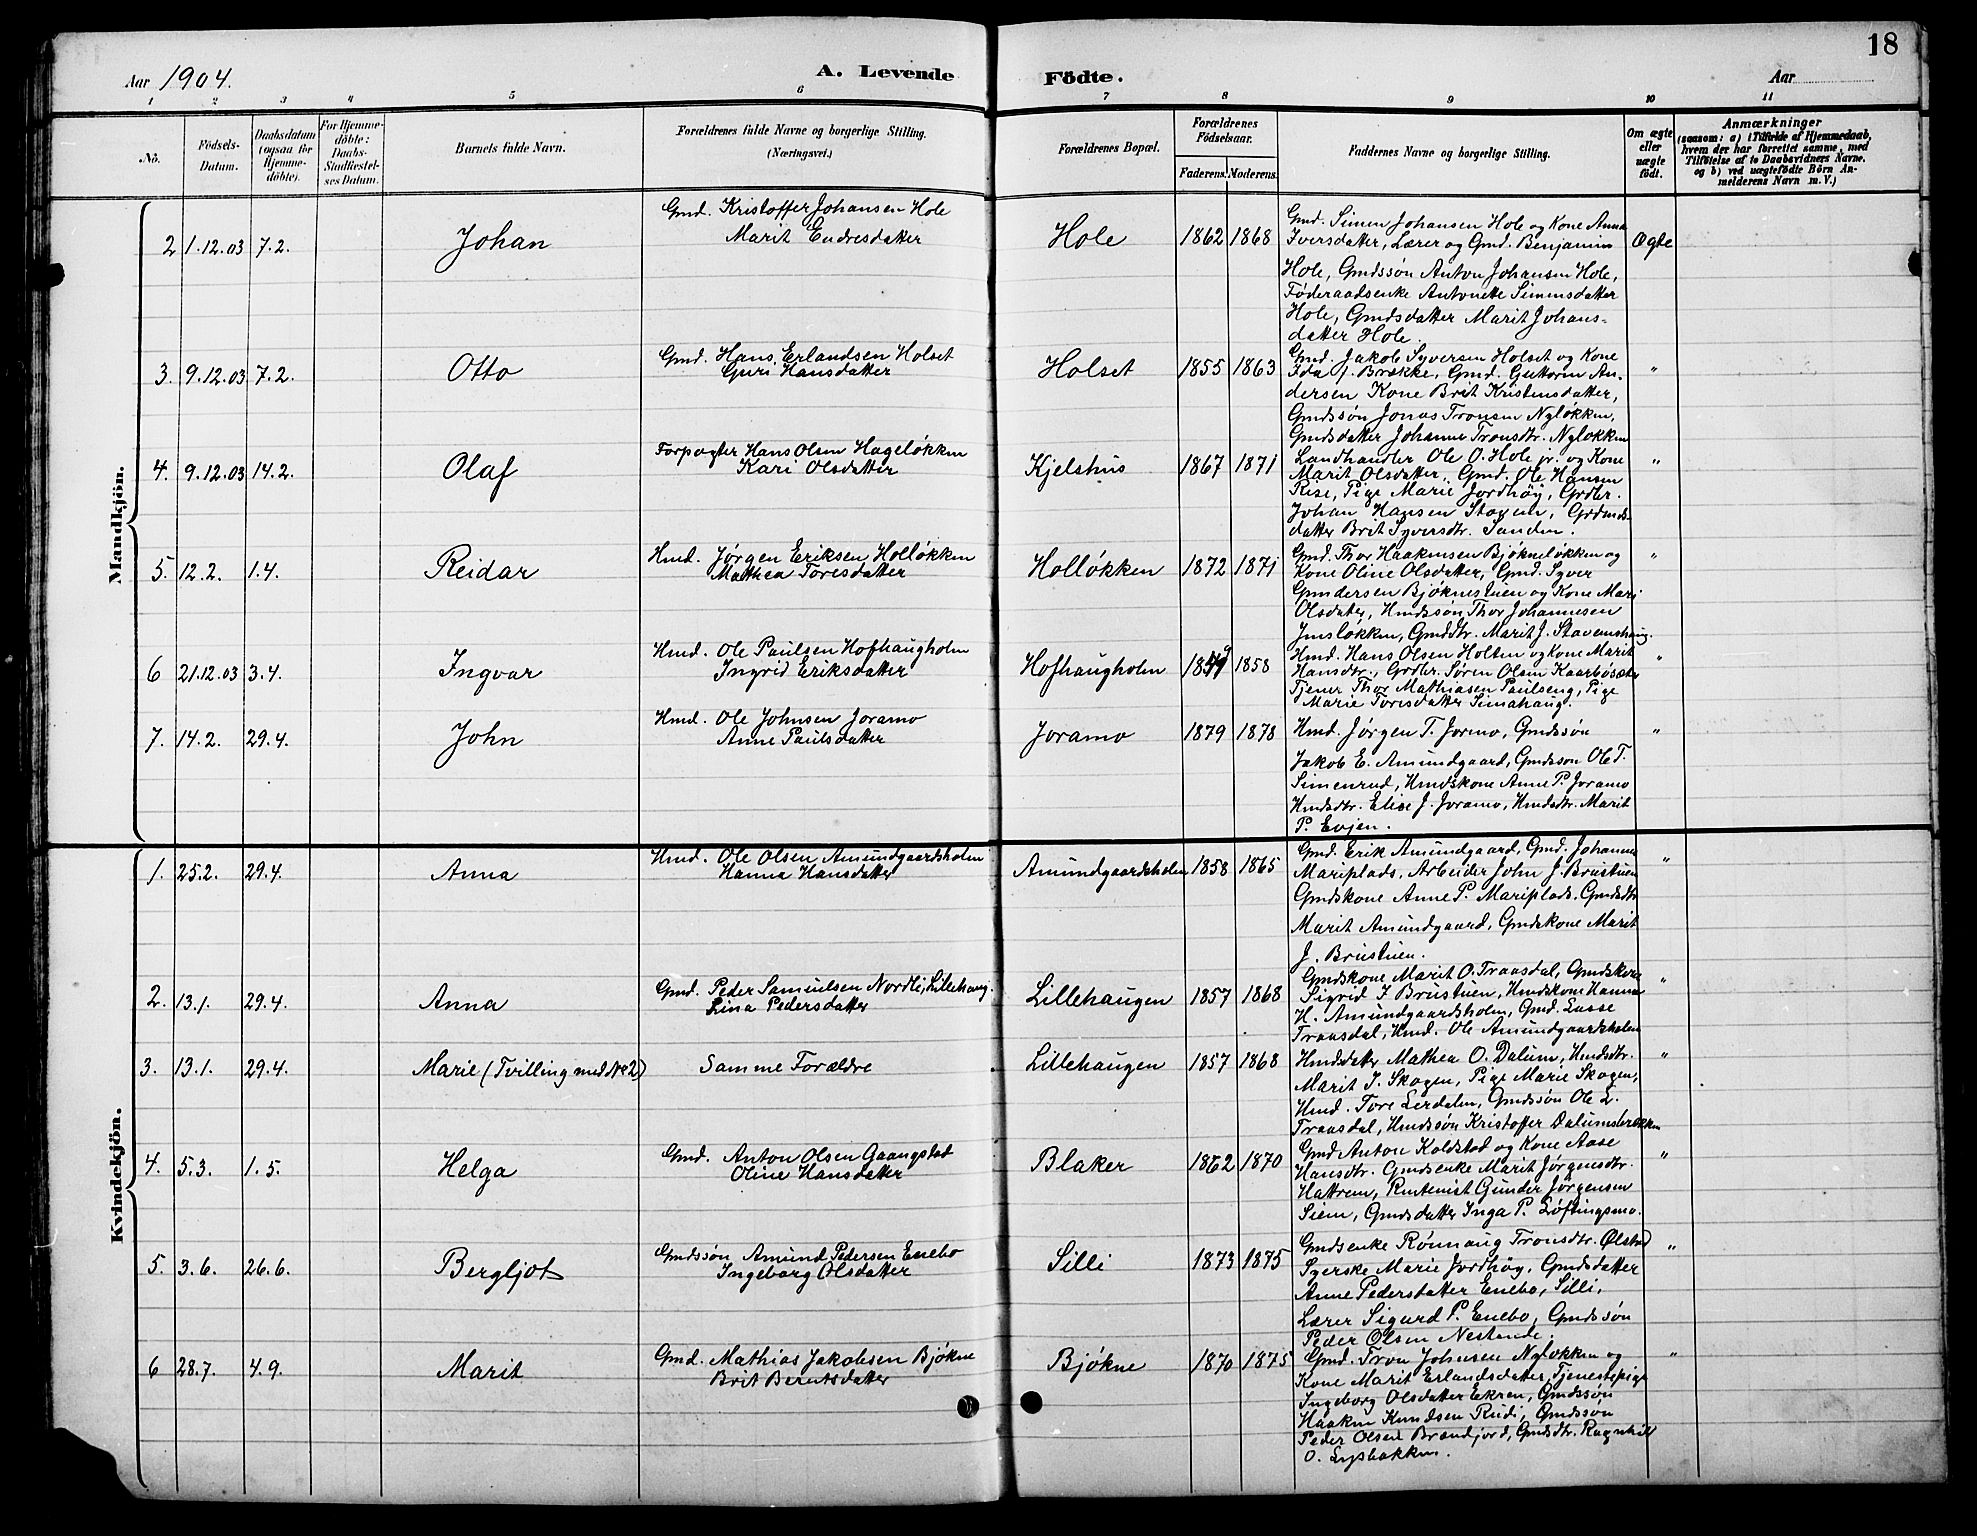 18
Aar 1904.
A. Levende Födte.
Aar
1 2 3 4 5 6 7 8 9 10 11
No.
Födsels-Datum.
Daabsdatum (ogsaa for Hjemme-döbte).
For Hjemme-döbte: Daabs-Stadfæstel-ses Datum.
Barnets fulde Navn.
Forældrenes fulde Navne og borgerlige Stilling.
(Næringsvei.)
Forældrenes Bopæl.
Forældrenes Födselsaar.
Faderens. Moderens.
Faddernes Navne og borgerlige Stilling.
Om ægte eller uægte födt.
Anmærkninger
(saasom: a) i Tilfælde af Hjemmedaab, hvem der har forrettet samme, med Tilföielse af to Daabsvidners Navne, og b) ved uægtefödte Börn An-melderens Navn m. V.)
Mandkjön.
2 1.12.03 7.2. Johan
Gmd. Kristoffer Johansen Hole
Marit Endresdatter
Hole 1862 1868
Gmd. Simen Johansen Hole og Kone Anna
Iversdatter, Lærer og Gmd. Benjamin
Hole, Gmdssøn Anton Johansen Hole,
Føderaadsenke Antonette Simensdatter
Hole, Gmdsdatter Marit Johans-
datter Hole.
Ægte
3. 9.12.03 7.2. Otto
Gmd. Hans Erlandsen Holset
Guri Hansdatter
Holset 1855 1863
Gmd. Jakob Syversen Holset og Kone
Ida J. Brække, Gmd. Guttorm An-
dersen Kone Brit Kristensdatter,
Gmdssøn Jonas Tronsen Nyløkken,
Gmdsdatter Johanne Tronsdtr. Nyløkken
"
4. 9.12.03 14.2. Olaf
Forpagter Hans Olsen Hageløkken
Kari Olsdatter
Kjelshus 1867 1871
Landhandler Ole O. Hole jr. og Kone
Marit Olsdatter, Gmd. Ole Hansen
Rise, Pige Marie Jordhøy, Grdbr.
Johan Hansen Staven, Grdmds-
datter Brit Syversdtr. Sanden.
"
5. 12.2. 1.4. Reidar
Hmd. Jørgen Eriksen Holløkken
Mathea Toresdatter
Holløkken 1872 1871
Gmd. Thor Haakensen Bjøkneløkken og
Kone Oline Olsdatter, Gmd. Syver
Gundersen Bjøknestuen og Kone Mari
Olsdatter, Hmdssøn Thor Johannesen
Imsløkken, Gmddtr. Marit J. Stavenshaug.
"
6 21.12.03 3.4. Ingvar
Hmd. Ole Paulsen Hofhaugholm
Ingrid Eriksdatter
Hofhaugholm 1858
Hmd. Hans Olsen Holten og Kone Marit
Hansdtr., Grdbr. Søren Olsen Kaarbøsæter
Tjener Thor Mathiasen Paulseng, Pige
Marie Toresdatter Simahaug.
"
7. 14.2. 29.4. John
Hmd. Ole Johnsen Joramo
Anne Paulsdatter
Joramo 1879 1878
Hmd. Jørgen T. Jormo, Gmdssøn
Jakob E. Amundgaard, Gmdssøn Ole T.
Simenrud, Hmdskone Anne P. Joramo
Hmdsdtr. Elise J. Joramo, Hmdsdtr. Marit
P. Evjen.
"
Kvindekjön.
1. 25.2. 29.4. Anna
Hmd. Ole Olsen Amundgaardsholm
Hanna Hansdatter
Amundgaardsholm 1858 1865
Gmd. Erik Amundgaard, Gmd. Johannes
Mariplads, Arbeider John J. Brustuen
Gmdskone Anne P. Mariplads. Gmdsdtr.
Marit Amundgaard, Gmdskone Marit
J. Brustuen.
"
2. 13.1. 29.4. Anna
Gmd. Peder Samuelsen Nordli, Lillehaug.
Lina Pedersdatter
Lillehaugen 1857 1868
Gmdskone Marit O. Traasdal, Gmdskone
Sigrid J Brustuen, Hmdskone Hanna
H. Amundgaardsholm, Gmd. Lasse
Traasdal, Hmd. Ole Amundgaardsholm
"
3. 13.1. 29.4. Marie (Tvilling med No 2)
Samme Forældre
Lillehaugen 1857 1868
Hmdsdatter Mathea O. Dalum, Hmdsdtr.
Marit J. Skogen, Pige Marie Skogen,
Hmd. Tore Lerdalen, Gmdssøn Ole L.
Traasdal, Hmdssøn Kristoffer Dalumsbrækken
"
4. 5.3. 1.5. Helga
Gmd. Anton Olsen Gaangstad
Oline Hansdatter
Blaker 1862 1870
Gmd Anton Koldstad og Kone Aase
Hansdtr. Gmdsenke Marit Jørgensdtr.
Hattrem, Rentenist Gunder Jørgensen
Siem, Gmdsdatter Inga P. Løftingsmo.
"
5. 3.6. 26.6. Bergljot
Gmdssøn Amund Pedersen Enebo
Ingeborg Olsdatter
Silli 1873 1875
Gmdsenke Rønnaug Tronsdtr. Ølstad
Syerske Marie Jordhøy, Gmdsdatter
Anne Pedersdatter Enebo, Silli,
Lærer Sigurd P. Enebo, Gmdssøn
Peder Olsen Nestande.
"
6 28.7. 4.9. Marit
Gmd. Mathias Jakobsen Bjøkne
Brit Berntsdatter
Bjøkne 1870 1875
Gmd. Tron Johnsen Nyløkken og
Kone Marit Erlandsdatter, Tjenestepige
Ingeborg Olsdatter Ekren, Gmdssøn
Haaken Knudsen Rudi, Gmdssøn
Peder Olsen Brandjord, Gmdsdtr. Ragnhild
O. Lysbakken.
"